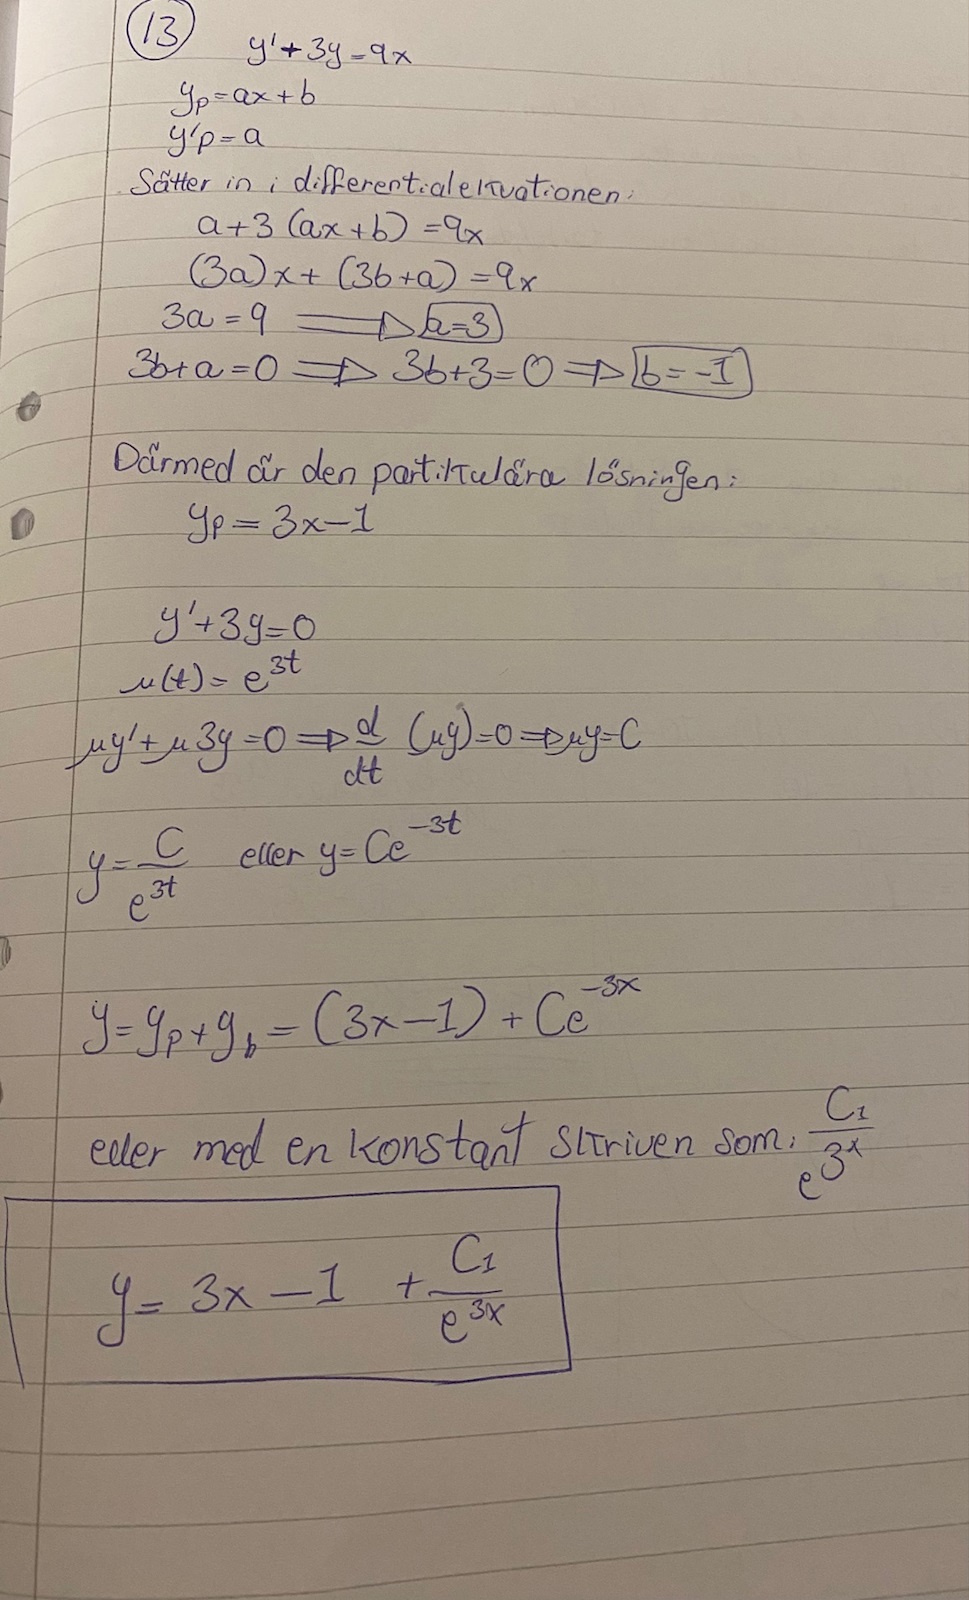 13
y'+3y=9x
yp=ax+b
y'p=a
Sätter in i differentialekvationen:
a+3(ax+b)=9x
(3a)x+(3b+a)=9x
3a=9 ⟹ a=3
3b+a=0 ⟹ 3b+3=0 ⟹ b=-1
Därmed är den partikulära lösningen:
yp=3x-1
y'+3y=0
μ(t)=e^3t
μy'+μ3y=0 ⟹ d/dt (μy)=0 ⟹ μy=C
y=C/e^3t eller y=Ce^-3t
y=yp+yb=(3x-1)+Ce^-3x
eller med en konstant skriven som: C1/e^3x
y=3x-1 +C1/e^3x